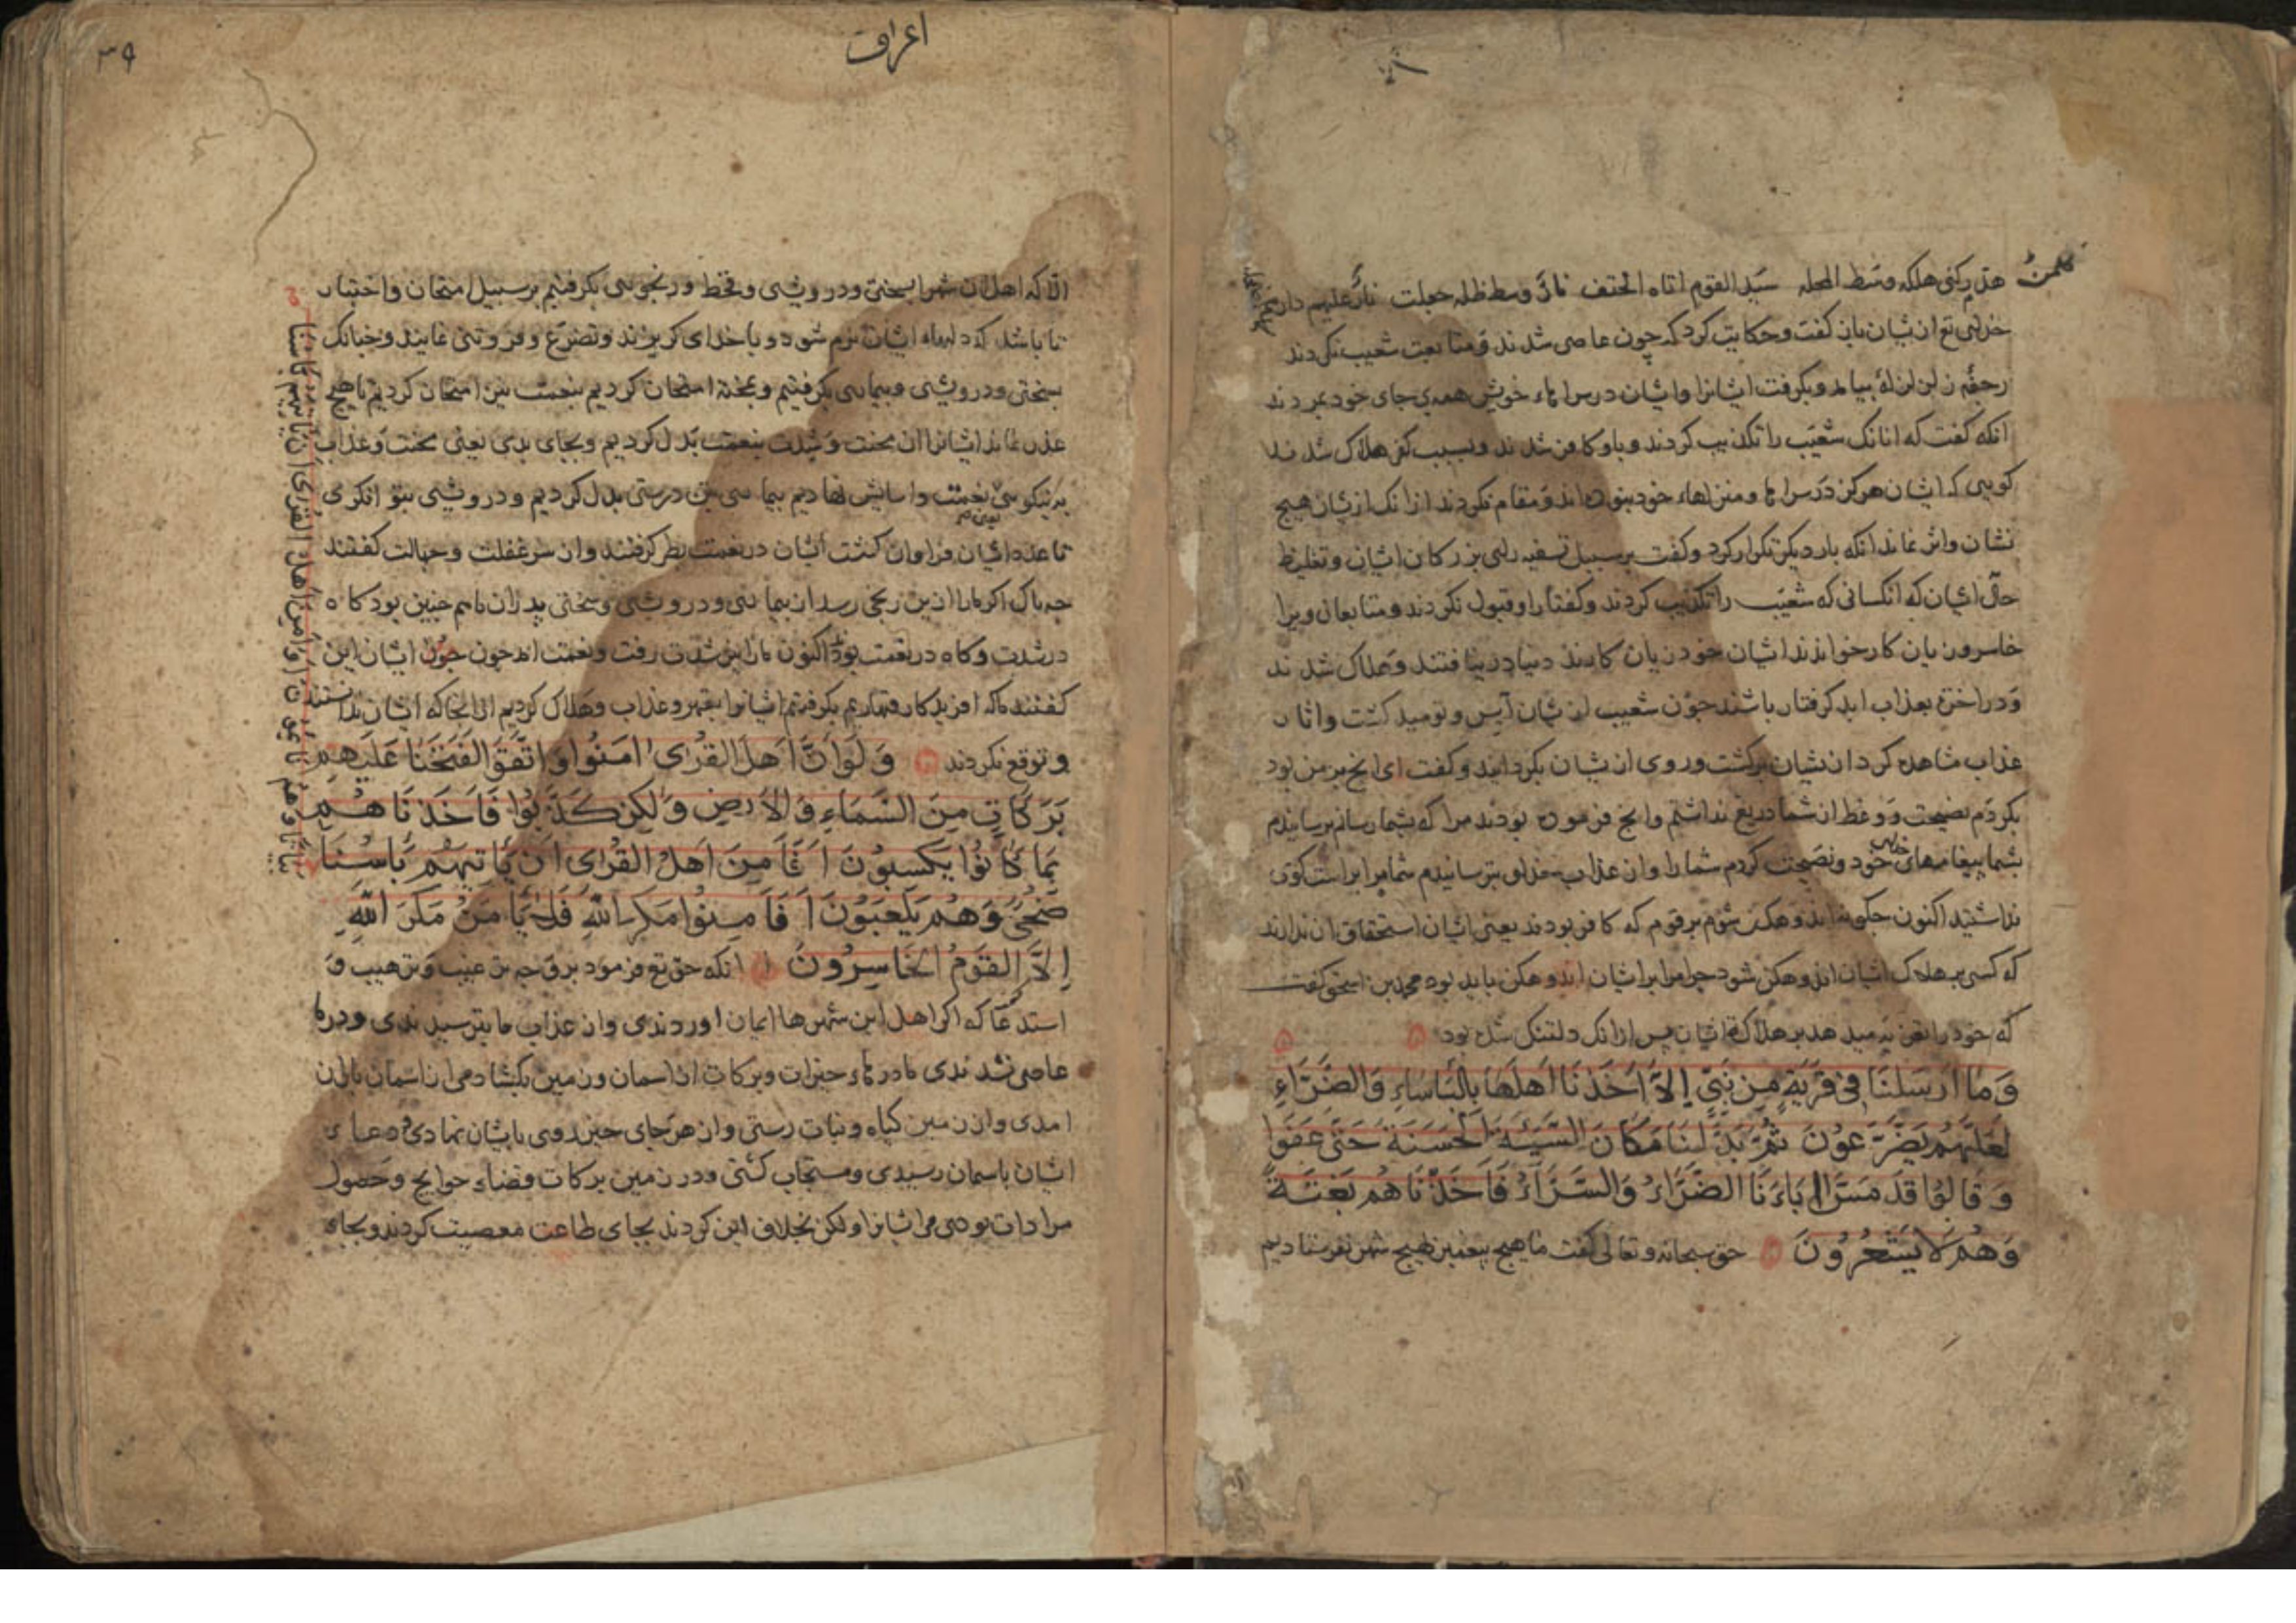 کلمن هدم رکنی هلکه وسط المحله سید القوم اتاه الحتف نار وسط ظله جعلت نار علیهم دارهم
خدای تع ازیشان باز گفت و حکایت کرد که چون عاصی شدند و متابعت شعیب نکردند
رجفه زلزله بیامد و بکرفت ایشانرا و ایشان در سراهاء خویش همه بر جای خود بمردند
انکه کفت که انانک شعیب را تکذیب کردند و باو کافر شدند و بسبب کفر هلاک شدند
کویی که ایشان هرکز در سراها و منزلهاء خود نبوده اند و مقام نکردند از انک ازیشان هیچ
نشان و اثر نماند انکه بار دیکر تکرار کرد و کفت بر سبیل تسفیه رای بزرکان ایشان و تغلیظ
حال ایشان که انکسانی که شعیب را تکذیب کردند و کفتار او قبول نکردند و متابعان ویرا
خاسر و زیان کار خواندند ایشان خود زیان کارند دنیا در نیافتند و هلاک شدند
و در اخرت بعذاب ابد کرفتار باشند چون شعیب ازیشان آیس و نومید کشت و اثار
عذاب مشاهده کرد ازیشان برکشت و روی ازیشان بکردانید و کفت ای انچ بر من بود
بکردم نصیحت و وعظ از شما دریغ نداشتم و انچ فرموده بودند مرا که بشما رسانم برسانیدم
بشما پیغامهای خدای خود و نصیحت کردم شما را و از عذاب خدای بترسانیدم شما مرا براست کوی
نداشتید اکنون چکونه اندوهکن شوم بر قوم که کافر بودند یعنی ایشان استحقاق ان ندارند
که کسی بر هلاک ایشان اندوهکن شود چرا مرا برای ایشان اندوهکن باید بود محمد بن اسحق کفت
که خود را تعزیه میدهد بر هلاک ایشان پس از انک دلتنک شده بود
وَمَا أَرْسَلْنَا فِي قَرْيَةٍ مِنْ نَبِيٍّ إِلَّا أَخَذْنَا أَهْلَهَا بِالْبَأْسَاءِ وَالضَّرَّاءِ
لَعَلَّهُمْ يَضَّرَّعُونَ ثُمَّ بَدَّلْنَا مَكَانَ السَّيِّئَةِ الْحَسَنَةَ حَتَّى عَفَوْا
وَقَالُوا قَدْ مَسَّ آبَاءَنَا الضَّرَّاءُ وَالسَّرَّاءُ فَأَخَذْنَاهُمْ بَغْتَةً
وَهُمْ لَا يَشْعُرُونَ حق سبحانه و تعالی کفت ما هیچ پیغمبر بهیچ شهر نفرستادیم
اعراف
۳۹
الا که اهل ان شهر را بسختی و درویشی و قحط و رنجوری بکرفتیم بر سبیل امتحان و اختبار
تا باشد که دلهاء ایشان نرم شود و با خدای کریزند و تضرع و فروتنی نمایند و چنانک
بسختی و درویشی و بیماری بکرفتیم و بمحنة امتحان کردیم بنعمت نیز امتحان کردیم تا هیچ
عذر نماند ایشانرا ان محنت و شدت بنعمت بدل کردیم و بجای بدی یعنی محنت و عذاب
نیکویی یعنی نعمت و اسایش نهادیم بیماری بتن درستی بدل کردیم و درویشی بتوانکری
تا عدد ایشان فراوان کشت ایشان در نعمت بطر کرفتند و از سر غفلت و جهالت کفتند
چه باک اکر ما را ازین رنجی رسد از بیماری و درویشی و سختی پدران ما هم چنین بود کاه
در شدت و کاه در نعمت بود اکنون ما را نیز شدت رفت و نعمت امد چون ایشان این
کفتند ما که افریدکار قهاریم بکرفتیم ایشانرا بقهر و عذاب و هلاک کردیم از انجا که ایشان ندانستند
و توقع نکردند وَلَوْ أَنَّ أَهْلَ الْقُرَى آمَنُوا وَاتَّقَوْا لَفَتَحْنَا عَلَيْهِمْ
بَرَكَاتٍ مِنَ السَّمَاءِ وَالْأَرْضِ وَلَكِنْ كَذَّبُوا فَأَخَذْنَاهُمْ
بِمَا كَانُوا يَكْسِبُونَ أَفَأَمِنَ أَهْلُ الْقُرَى أَنْ يَأْتِيَهُمْ بَأْسُنَا
ضُحًى وَهُمْ يَلْعَبُونَ أَفَأَمِنُوا مَكْرَ اللَّهِ فَلَا يَأْمَنُ مَكْرَ اللَّهِ
إِلَّا الْقَوْمُ الْخَاسِرُونَ انکه حق تع فرمود بر وجه ترغیب و ترهیب و
استدعا که اکر اهل این شهرها ایمان اوردندی و از عذاب ما بترسیدندی و در ما
عاصی نشدندی ما درهاء خیرات و برکات از اسمان و زمین بکشادمی از اسمان باران
امدی و از زمین کیاه و نبات رستی و از هر جای خیر روی بایشان نهادی و دعای
ایشان باسمان رسیدی و مستجاب کشتی و در زمین برکات و قضاء حوایج و حصول
مرادات بودی مر ایشانرا ولکن بخلاف این کردند بجای طاعت معصیت کردند و بجای
بیاتا وهم نائمون اوامن اهل القری ان یأتیهم بأسنا